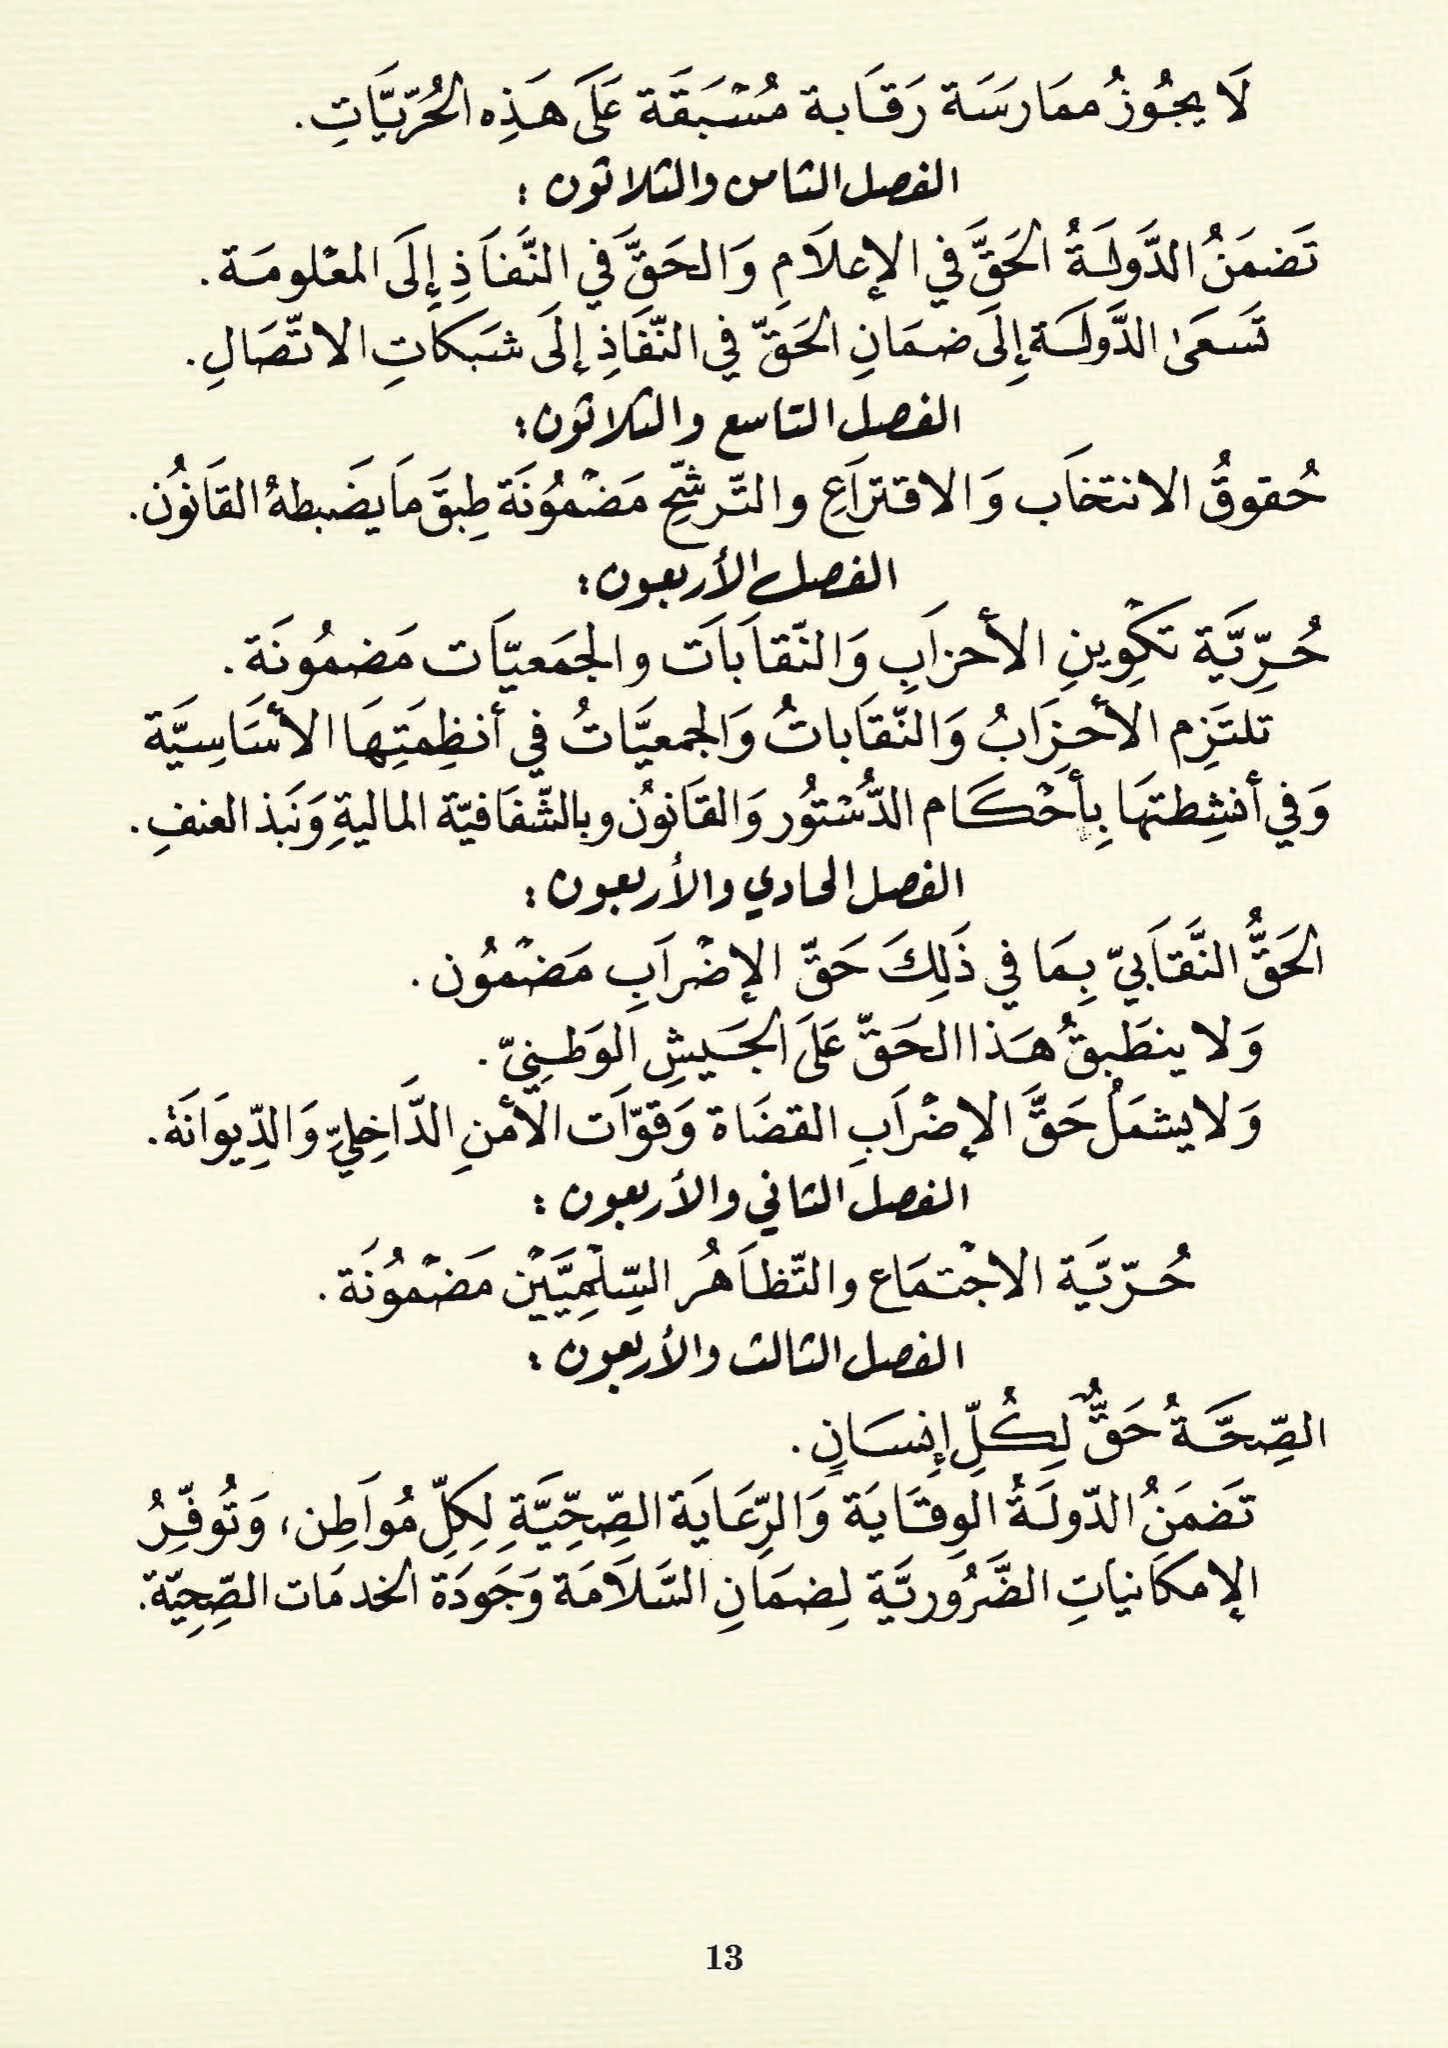 لَا يجُوزُ ممَارَسَة رَقَابة مُسْبَقَة عَلَى هَذِه الحُرّيَّاتِ.
الفصل الثامن والثلاثون :
تَضمَنُ الدَّولَةُ الحَقَّ في الإعلَامِ وَالحَقَّ في النَّفاَذِ إلَى المعْلومَة.
تَسعَىٰ الدَّولَة إِلَى ضمَانِ الحَقّ في النّفَاذِ إلَى شبَكَاتِ الاتّصَالِ.
الفصل التاسع والثلاثون :
حُقوقُ الانتخَاب وَالاقتراَعِ والتّرشّحِ مَضْمُونَة طِبقَ مَا يضَبطهُ القَانُون.
الفصل الأربعون :
حُرِّيَّة تكْوِينِ الأحزاَبِ وَالنّقاَبَات والجمَعيّاَت مَضمُونَة.
تلتَزِم الأحزَابُ وَالنّقَاباتُ وَالجمعيَّاتُ في أنظِمَتِهَا الأسَاسِيَّة
وَفي أنشِطتهَا بِأحْكَام الدُّسْتوُر وَالقَانوُن وبالشّفَافيّة الماليةِ وَنَبذ العنفِ.
الفصل الحادي والأربعون :
الحَقُّ النَّقاَبيّ بِمَا في ذَلِكَ حَقّ الإضْراَبِ مَضْمُون.
وَلا ينطَبقُ هَذا الحَقّ عَلَى الجَيشِ الوَطنِيّ.
وَلا يشمَلُ حَقَّ الإضْراَبِ القضَاة وَقوّاَت الأمنِ الدَّاخِليّ وَالدِّيوَانَة.
الفصل الثاني والأربعون :
حُرّيَّة الاجْتمَاع والتّظاَهُر السِّلْمِيَّيْن مَضْمُونَة.
الفصل الثالث والأربعون :
الصِّحَّةُ حَقٌّ لِكُلِّ إنسَانٍ.
تَضمَنُ الدّولَةُ الوِقَايَة وَالرِّعَايَة الصِّحِّيَّةِ لِكلِّ مُواَطِن، وَتُوفّرُ
الإمكَانياتِ الضَّرُوريَّة لِضمَانِ السَّلَامَة وَجَودَة الخدمَات الصِّحِيّة.
13